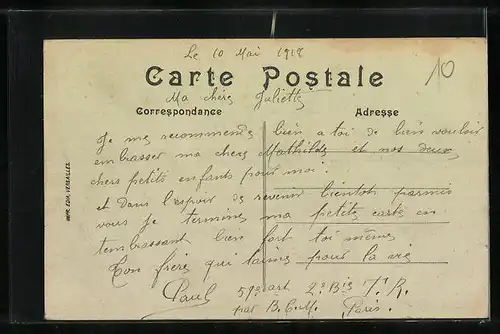 Le 10 Mai 1918
10
Carte Postale
Ma chère Juliette
Correspondance
Adresse
Je me recommende bien a toi de bien vouloir
embrasser ma chère Mathilde et nos deux
chers petits enfants pour moi.
et dans l'espoir de revenir bientot parmis
vous je termines ma petite carte en
tembrassant bien fort toi même
Ton frère qui taime pour la vie
Paul 57e art 2e Bis T. R.
par B. C. M. Paris.
IMP. EDIA, VERSAILLES